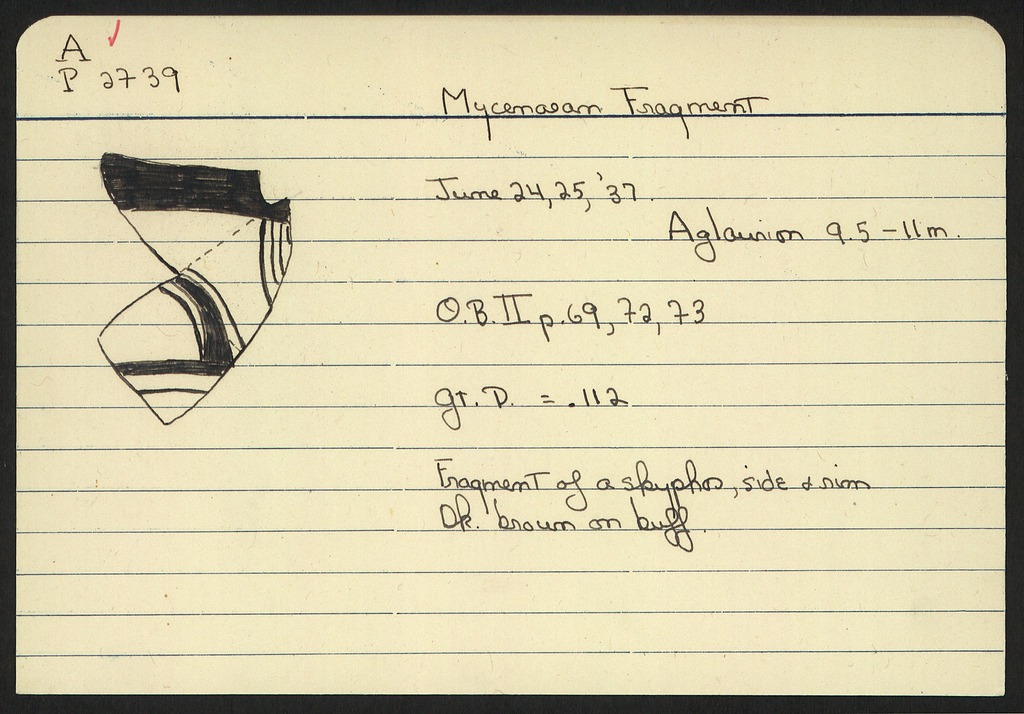 A
P 2739
Mycenaean Fragment
June 24, 25, '37.
Aglaurion 9.5 - 11 m.
O.B. II p. 69, 72, 73
gr. D. = .112
Fragment of a skyphos, side & rim
Dk. brown on buff.